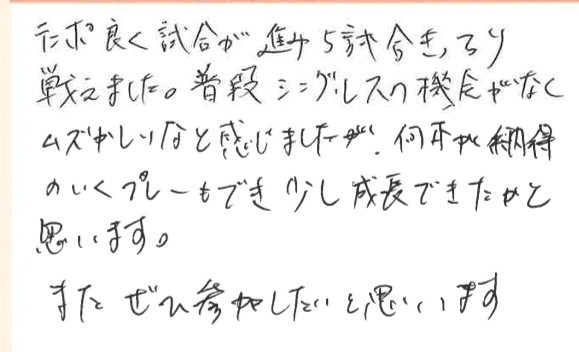 テンポ良く試合が進み5試合きっちり
戦えました。普段シングルスの機会がなく
ムズかしいなと感じましたが、何本か納得
のいくプレーもでき少し成長できたかと
思います。
またぜひ参加したいと思います